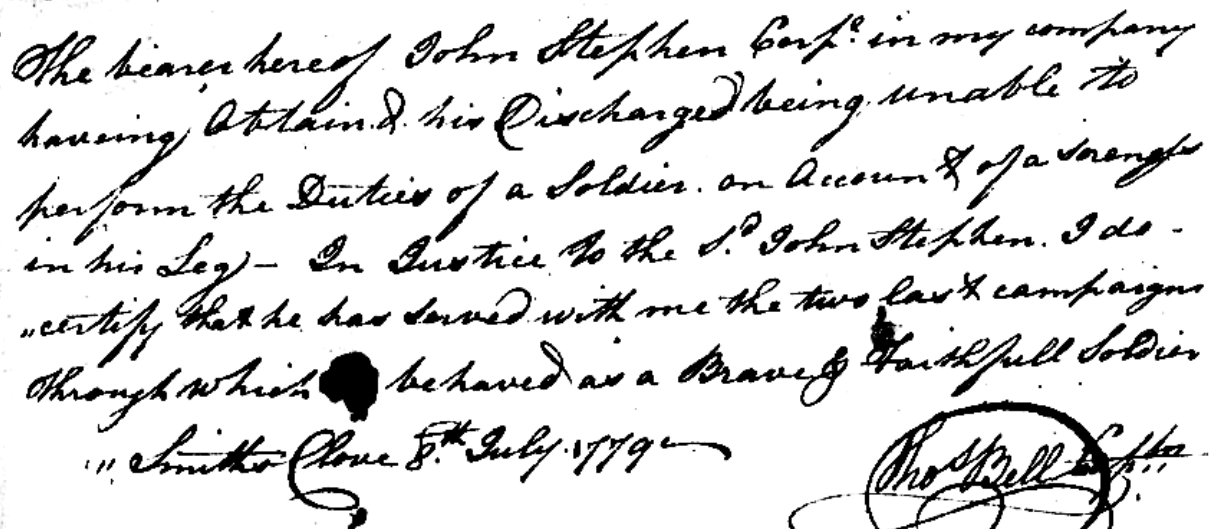 The bearer hereof John Stephen Corpl. in my company
haveing Obtain.d his Discharged being unable to
perform the Duties of a Soldier. on Account of a
in his Leg) — In Justice to the Sd. John Stephen. I do -
„certify that he has Served with me the two last campaigns
through which behaved as a Brave & Faithfull Soldier
„ Smiths Clove 8.th July 1779
Thos Bell Captn